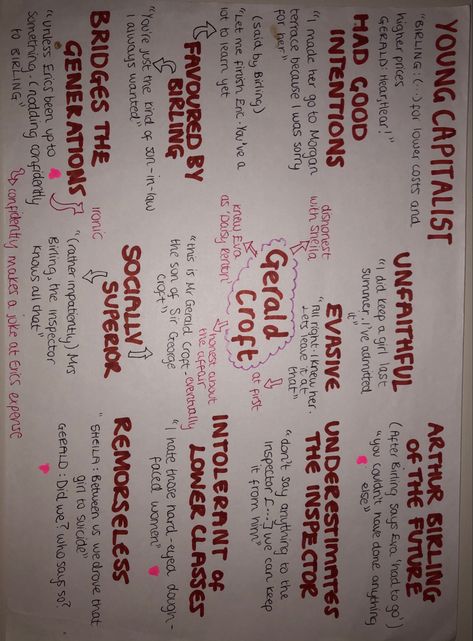 YOUNG CAPITALIST
"BIRLING: (...) for lower costs and
higher prices
GERALD: Hear, Hear!"
UNFAITHFUL
"I did keep a girl last
summer. I've admitted
it"
ARTHUR BIRLING
OF THE FUTURE
(After Birling says Eva 'had to go')
"you couldn't have done anything
else"
HAD GOOD
INTENTIONS
"I made her go to Morgan
terrace because I was sorry
for her"
dishonest
with Sheila
EVASIVE
"All right. I knew her.
Let's leave it at
that"
at first
UNDERESTIMATES
THE INSPECTOR
"don't say anything to the
inspector [...] we can keep
it from him"
(said by Birling)
"Let me finish Eric. You've a
lot to learn yet
FAVOURED BY
BIRLING
"You're just the kind of son-in-law
I always wanted"
Gerald
Croft
knew Eva
as 'Daisy Renton'
honest about
the affair
eventually
"this is Mr Gerald Croft -
the son of Sir George
Croft"
INTOLERANT OF
LOWER CLASSES
"I hate those hard-eyed dough-
faced women"
BRIDGES THE
GENERATIONS
"Unless Eric's been up to
something. (nodding confidently
to BIRLING)"
ironic
confidently makes a joke at Eric's expense
SOCIALLY
SUPERIOR
"(rather impatiently) Mrs
Birling, the inspector
knows all that"
REMORSELESS
"SHEILA: Between us we drove that
girl to suicide"
GERALD: Did we? Who says so?